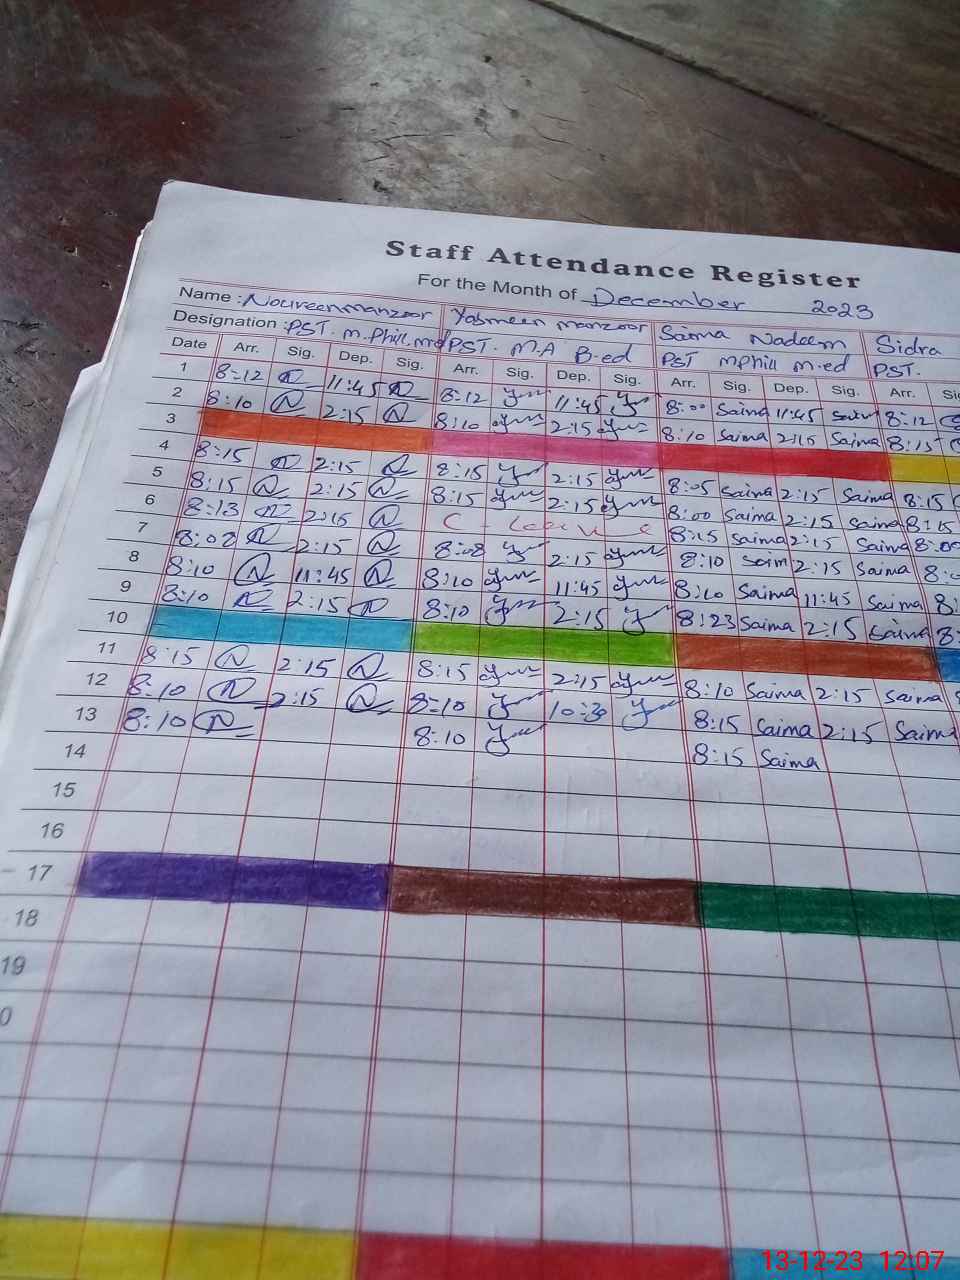 Staff Attendance Register
For the Month of December 2023
Name : Noureen manzoor Yasmeen manzoor Saima Nadeem Sidra
Designation : PST. M.Phill. PST. M.A B.ed PST MPhill m.ed PST.
Date Arr. Sig. Dep. Sig. Arr. Sig. Dep. Sig. Arr. Sig. Dep. Sig. Arr.
1 8:12 11:45 8:12 11:45 8:00 Saima 11:45 8:12
2 8:10 2:15 8:10 2:15 8:10 Saima 2:15 Saima 8:15
3
4 8:15 2:15 8:15 2:15 8:05 Saima 2:15 Saima 8:15
5 8:15 2:15 8:15 2:15 8:00 Saima 2:15 Saima 8:15
6 8:13 2:15 C - Leave 8:15 Saima 2:15 Saima
7 8:08 2:15 8:08 2:15 8:10 2:15 Saima
8 8:10 11:45 8:10 11:45 8:10 Saima 11:45 Saima
9 8:10 2:15 8:10 2:15 8:23 Saima 2:15 Saima
10
11 8:15 2:15 8:15 2:15 8:10 Saima 2:15 Saima
12 8:10 2:15 8:10 10:30 8:15 Saima 2:15 Saima
13 8:10 8:10 8:15 Saima
14
15
16
17
18
19
0
13-12-23 12:07